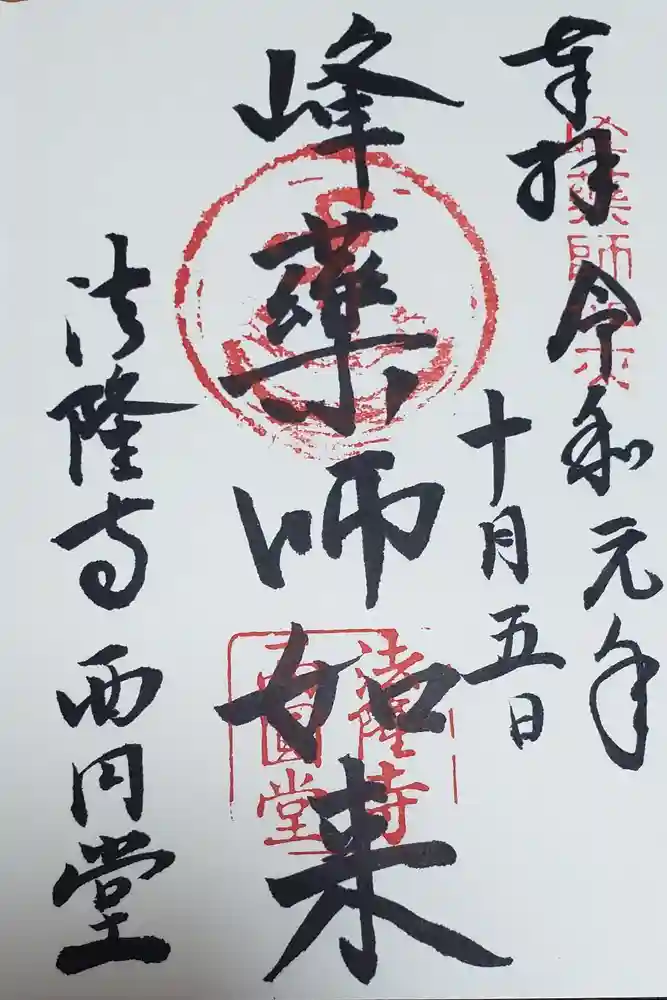 奉拝 令和元年
十月五日
峰薬師如来
法隆寺 西円堂
峰薬師如来
法隆寺
西圓堂